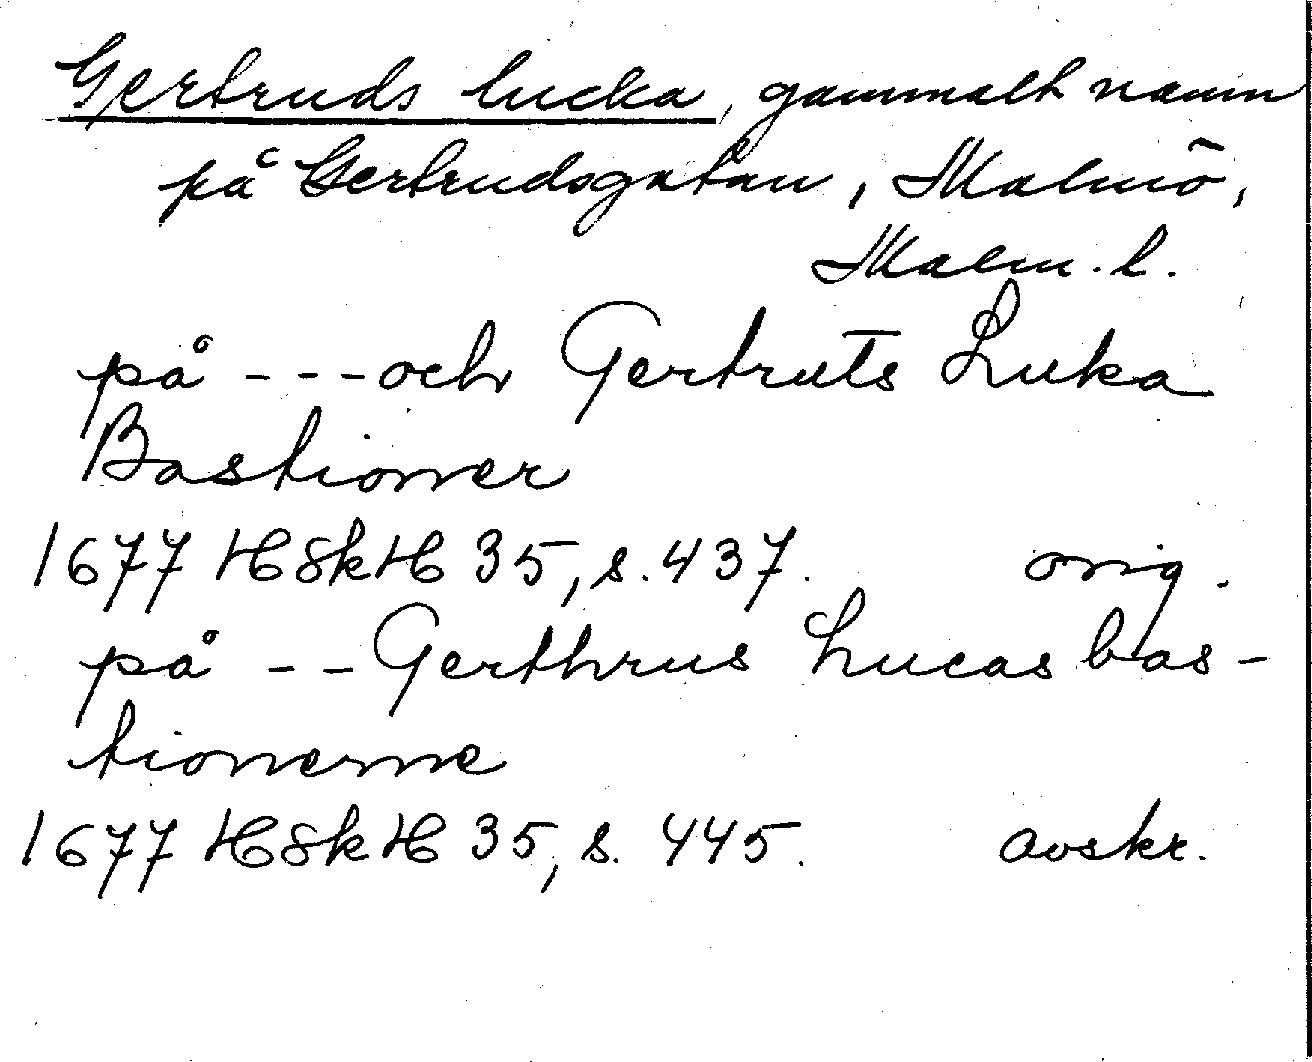 Gertruds lucka, gammalt namn
på Gertrudsgatan, Malmö,
Malm. l.
på --- och Gertruts Luka
Bastioner
1677 HSkH 35, s. 437. orig.
på -- Gerthrus Lucas bas-
tionerne
1677 HSkH 35, s. 445. avskr.